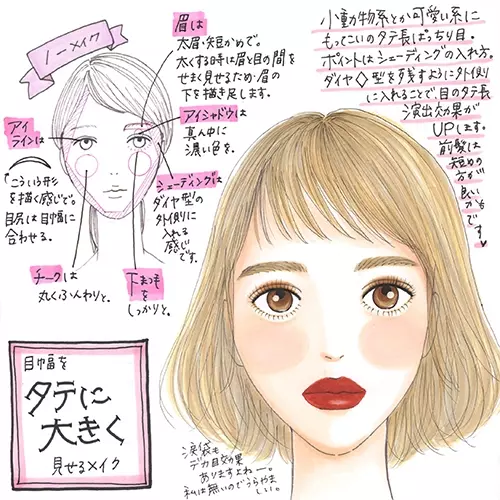 ノーメイク
眉は
太眉・短かめで。
太くする時は眉と目の間を
せまく見せるため・眉の
下を描き足します。
アイシャドウは
真ん中に
濃い色を。
アイ
ラインは
こういう形
を描く感じで。
目尻は目幅に
合わせる。
シェーディングは
ダイヤ型の
外側に
入れる
感じ
です。
チークは
丸くふんわりと。
下まつ毛
を
しっかりと。
小動物系とか可愛い系に
もってこいのタテ長ぱっちり目。
ポイントはシェーディングの入れ方。
ダイヤ◇型を残すように外側
に入れることで、目のタテ長
演出効果が
UPします。
前髪は
短め
の方が
良い
かもです
目幅を
タテに
大きく
見せるメイク
涙袋も
デカ目効果
ありますよねー。
私は無いのでうらやま
しい。